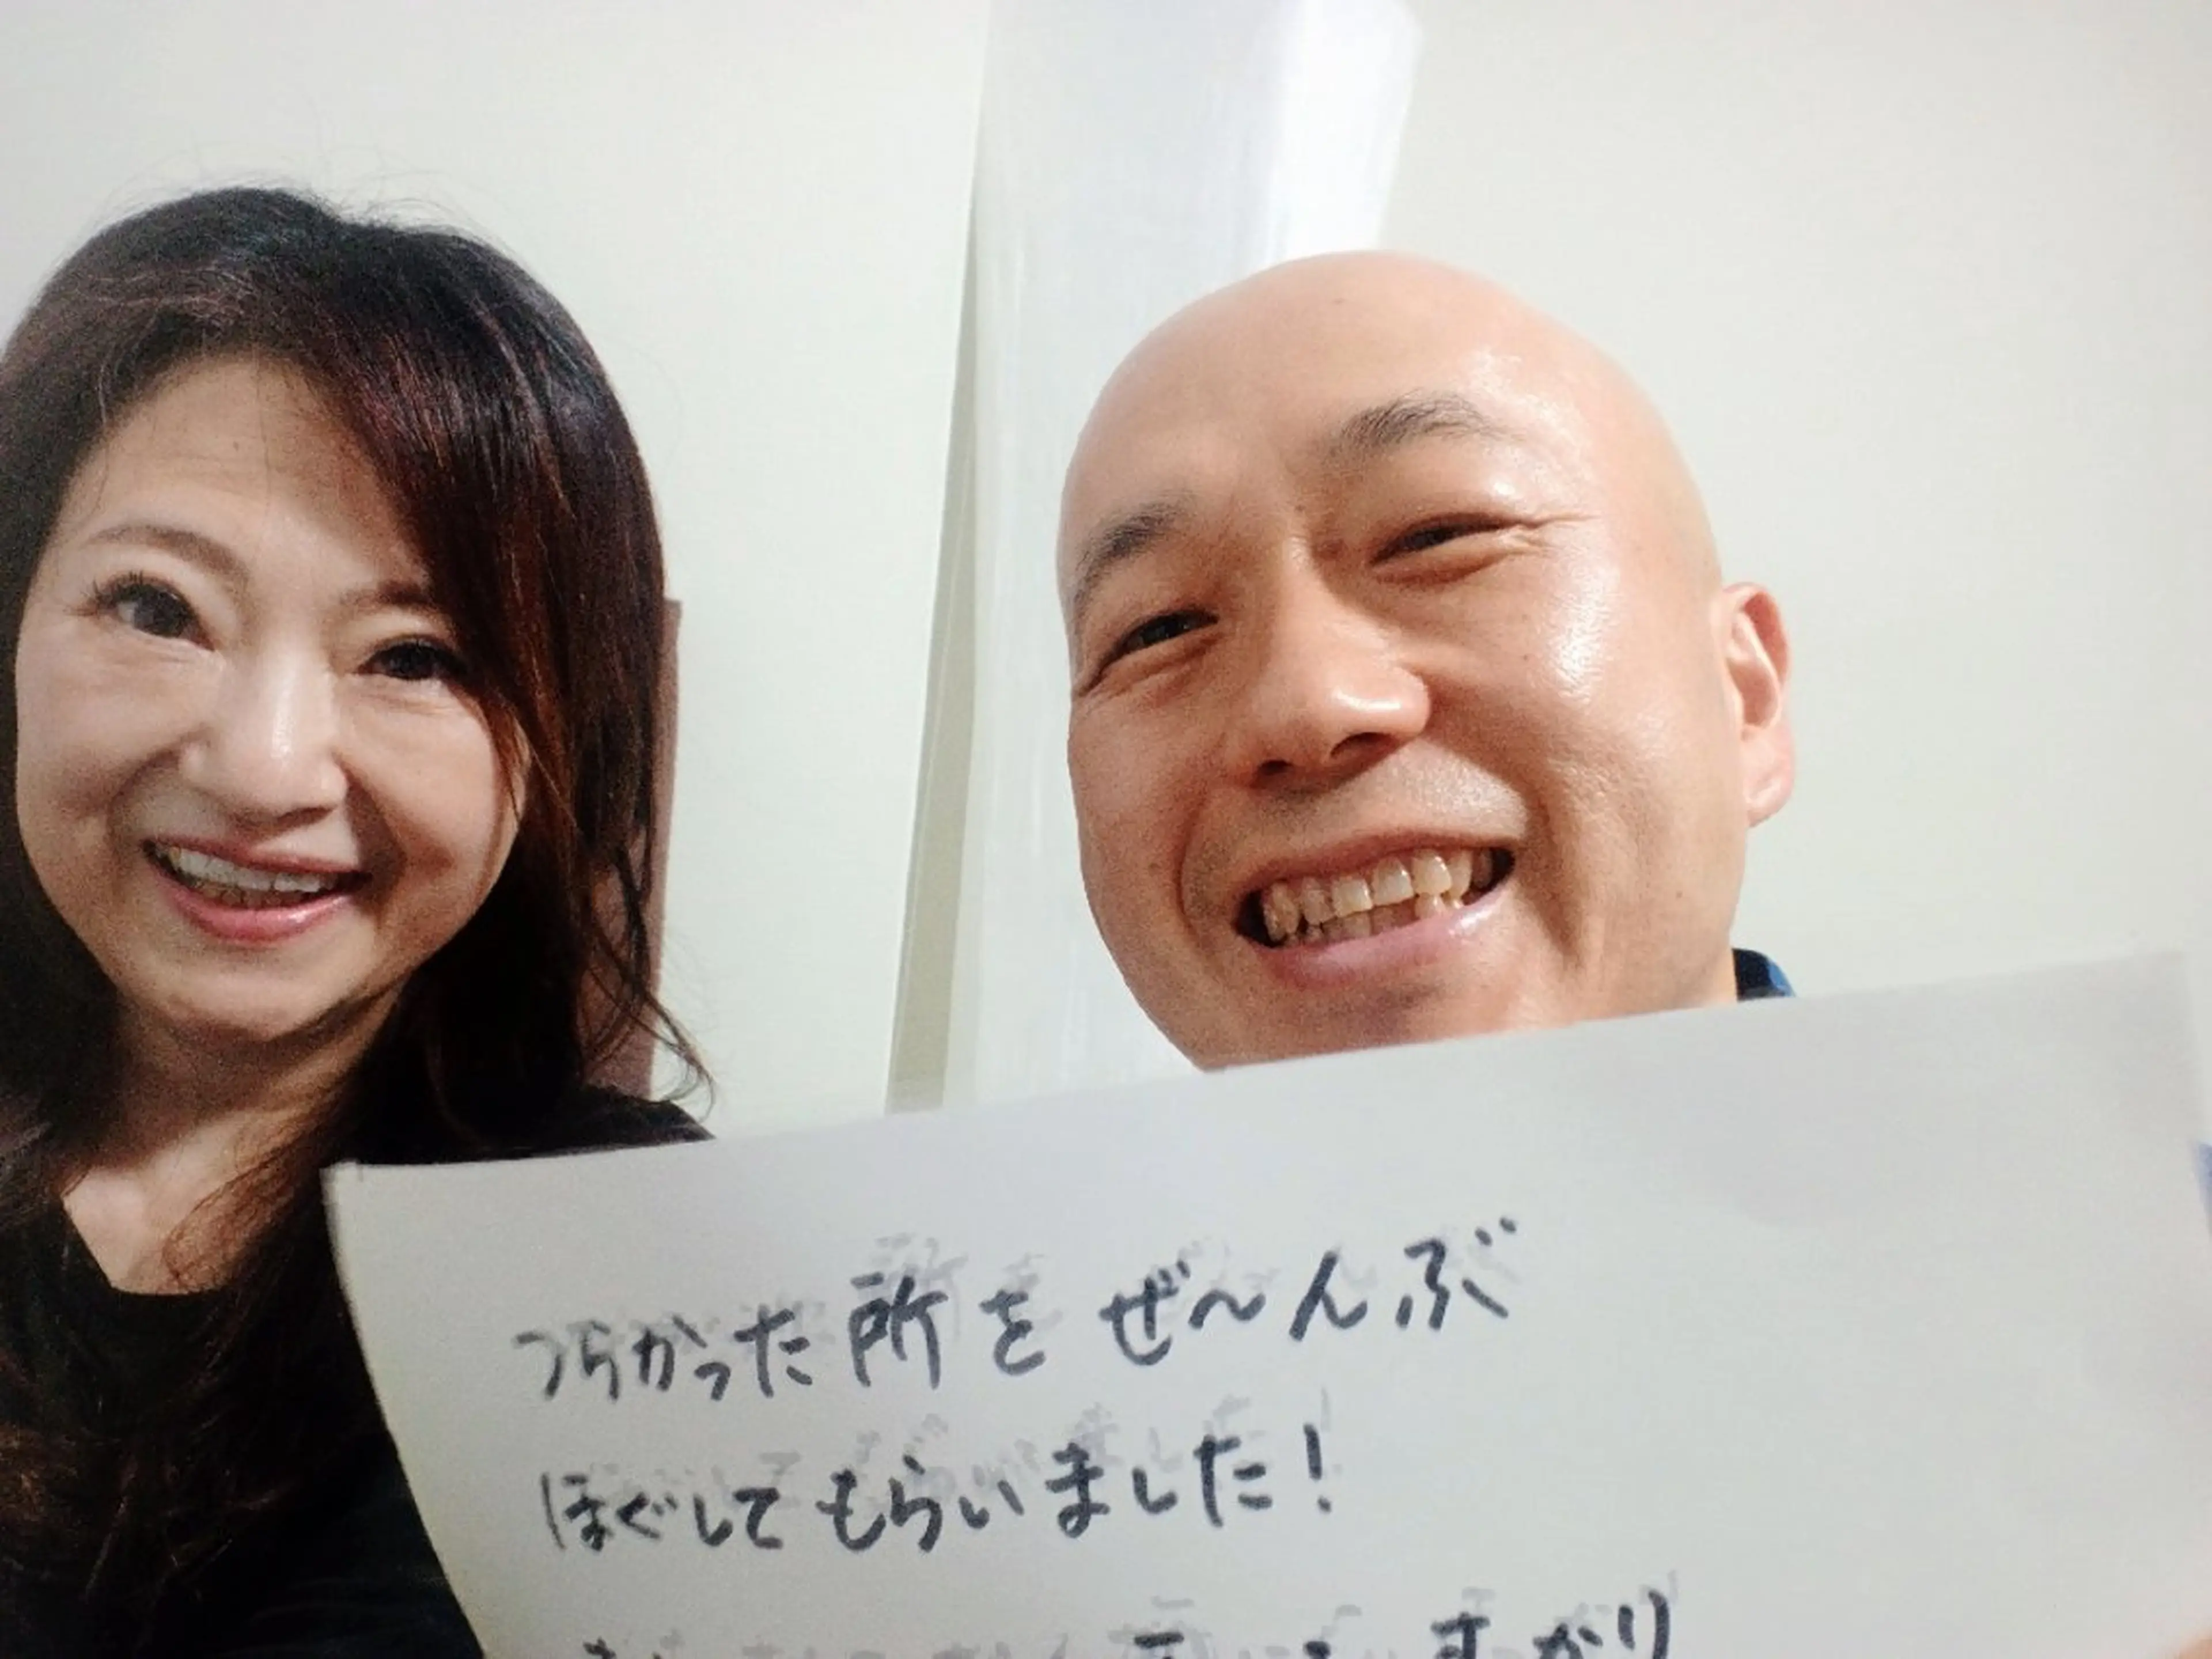 つらかった所をぜ〜んぶ
ほぐしてもらいました！